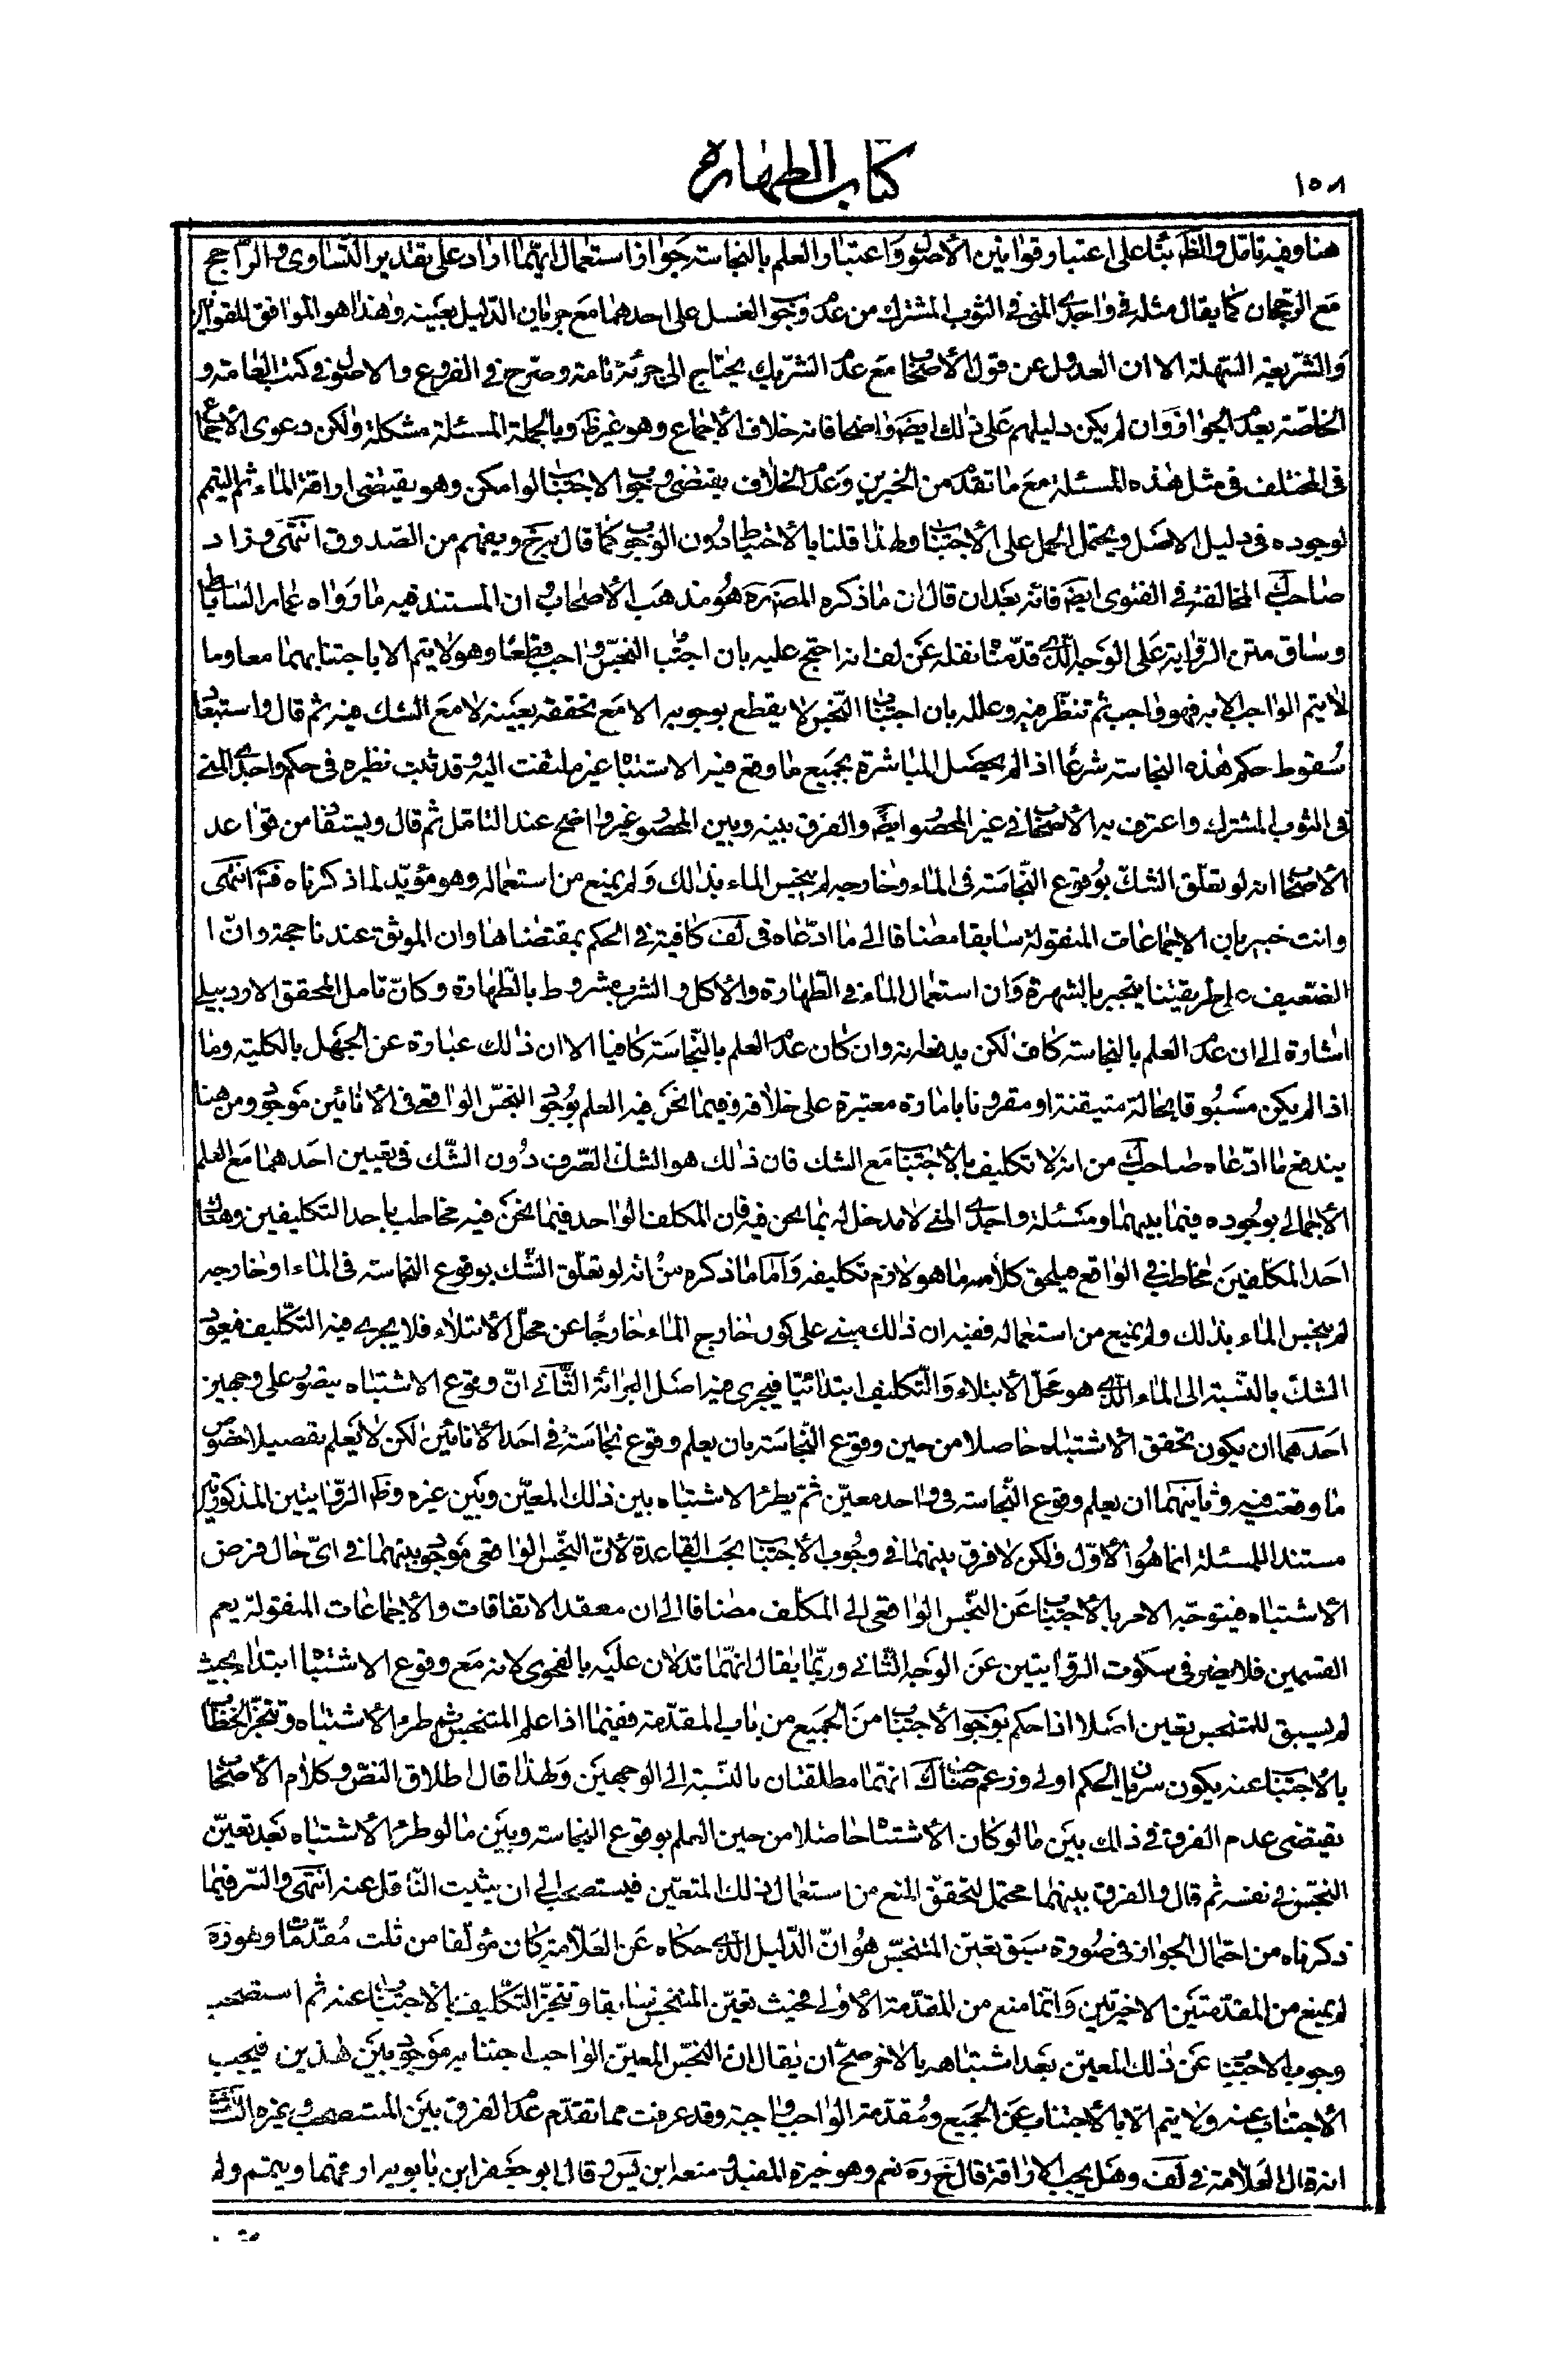 ١٥٨
كتاب الطهارة
هنا وفيه تامل والظ بناء على اعتبار قوانين الأصول واعتبار العلم بالنجاسة جواز استعمال ايهما اراد على تقدير التساوى والراجح
مع الرجحان كما يقال مثله في واجدى المنى في الثوب المشترك من عدم وجوب الغسل على احدهما مع جريان الدليل بعينه وهذا هو الموافق للقوانين
والشريعة السهلة الا ان العدول عن قول الأصحاب مع عدم الشريك يحتاج الى جرئة تامة وصرح في الفروع والاصول في كتب العامة و
الخاصة بعدم الجواز وان لم يكن دليلهم على ذلك ايضا واضحا فانه خلاف الأجماع وهو غير ظ وبالجملة المسئلة مشكلة ولكن دعوى الأجماع
في المختلف في مثل هذه المسئلة مع ما تقدم من الخبرين وعدم الخلاف يقتضى وجوب الاجتناب لو امكن وهو يقتضى اراقة الماء ثم التيمم
لوجوده في دليل الاصل ويحتمل الحمل على الأجتناب ولهذا قلنا بالأحتياط دون الوجوب كما قال به ج ويفهم من الصدوق انتهى وزاد
صاحب ك المخالفة في الفتوى ايضا فانه بعد ان قال ان ما ذكره المصنف ره هو مذهب الأصحاب وان المستند فيه ما رواه عمار الساباطى
وساق متن الرواية على الوجه الذى قدمنا نقله عن لف انه احتج عليه بان اجتناب النجس واجب قطعا وهو لا يتم الا باجتنابهما معا وما
لا يتم الواجب الا به فهو واجب ثم تنظر فيه وعلله بان اجتناب النجس لا يقطع بوجوبه الا مع تحققه بعينه لا مع الشك فيه ثم قال واستبعاد
سقوط حكم هذه النجاسة شرعا اذا لم يحصل المباشرة بجميع ما وقع فيه الاشتباه غير ملتفت اليه وقد ثبت نظيره في حكم واجدى المنى
في الثوب المشترك واعترف به الأصحاب في غير المحصور ايضا والفرق بينه وبين المحصور غير واضح عند التامل ثم قال ويستفاد من قواعد
الأصحاب انه لو تعلق الشك بوقوع النجاسة في الماء وخارجه لم ينجس الماء بذلك ولم يمنع من استعماله وهو مؤيد لما ذكرناه فتم انتهى
وانت خبير بان الاجماعات المنقولة سابقا مضافا الى ما ادعاه في لف كافية في الحكم بمقتضاها وان الموثق عندنا حجة وان ا
الضعيف على طريقتنا ينجبر بالشهرة وان استعمال الماء في الطهارة والأكل والشرب مشروط بالطهارة وكان تامل المحقق الاردبيلى
اشارة الى ان عدم العلم بالنجاسة كاف لكن يدفعه انه وان كان عدم العلم بالنجاسة كافيا الا ان ذلك عبارة عن الجهل بالكلية وما
اذا لم يكن مسبوقا بحالة متيقنة او مقرونا بامارة معتبرة على خلافه وفيما نحن فيه العلم بوجود النجس الواقعى في الأنائين موجود ومن هنا
يندفع ما ادعاه صاحب ك من انه لا تكليف بالأجتناب مع الشك فان ذلك هو الشك الصرف دون الشك في تعيين احدهما مع العلم
الأجمالى بوجوده فيما بينهما ومسئلة واجدى المنى لا مدخل له بما نحن فيه فان المكلف الواحد فيما نحن فيه مخاطب باحد التكليفين وهناك
احد المكلفين مخاطب في الواقع فيلحق كلا منهما ما هو لازم تكليفه وأما ما ذكره من انه لو تعلق الشك بوقوع النجاسة في الماء او خارجه
لم ينجس الماء بذلك ولم يمنع من استعماله ففيه ان ذلك مبنى على كون خارج الماء خارجا عن محل الأبتلاء فلا يجرى فيه التكليف فيعود
الشك بالنسبة الى الماء الذى هو محل الأبتلاء والتكليف ابتدائيا فيجرى فيه اصل البرائة الثانى ان وقوع الاشتباه يتصور على وجهين
احدهما ان يكون تحقق الأشتباه حاصلا من حين وقوع النجاسة بان يعلم وقوع نجاسة في احد الأنائين لكن لا يعلم تفصيلا خصوص
ما وقعت فيه وثانيهما ان يعلم وقوع النجاسة في واحد معين ثم يطرء الاشتباه بين ذلك المعين وبين غيره وظ الروايتين المذكورتين
مستندا للمسئلة انما هو الأول ولكن لا فرق بينهما في وجوب الأجتناب بحسب القاعدة لأن النجس الواقعى موجود بينهما في اى حال فرض
الأشتباه فيتوجه الامر بالأجتناب عن النجس الواقعى الى المكلف مضافا الى ان معقد الاتفاقات والأجماعات المنقولة يعم
القسمين فلا يضر في سكوت الروايتين عن الوجه الثانى وربما يقال انهما تدلان عليه بالفحوى لانه مع وقوع الاشتباه ابتداء بحيث
لم يسبق للمتنجس تعين اصلا اذا حكم بوجوب الأجتناب من الجميع من باب المقدمة ففيما اذا علم المتنجس ثم طرء الأشتباه وتنجز الخطاب
بالأجتناب عنه يكون سريان الحكم اولى وزعم صاحب ك انهما مطلقتان بالنسبة الى الوجهين ولهذا قال اطلاق النص وكلام الأصحاب
يقتضى عدم الفرق في ذلك بين ما لو كان الأشتباه حاصلا من حين العلم بوقوع النجاسة وبين ما لو طرء الأشتباه بعد تعين
النجس في نفسه ثم قال والفرق بينهما محتمل لتحقق المنع من استعمال ذلك المتعين فيستصحب الى ان يثبت الناقل عنه انتهى والسر فيما
ذكرناه من احتمال الجواز في صورة سبق تعين المتنجس هو ان الدليل الذى حكاه عن العلامة كان مؤلفا من ثلث مقدمات وهو ره
لم يمنع من المقدمتين الاخيرتين وانما منع من المقدمة الأولى فحيث تعين المتنجس سابقا وتنجز التكليف بالأجتناب عنه ثم استصحب
وجوب الاجتناب عن ذلك المعين بعد اشتباهه بالاخر صح ان يقال ان النجس المعين الواجب اجتنابه موجود بين هذين فيجب
الأجتناب عنه ولا يتم الا بالأجتناب عن الجميع ومقدمة الواجب واجبة وقد عرفت مما تقدم عدم الفرق بين المستصحب وغيره الثالث
انه قال العلامة في لف وهل يجب الاراقة قال خ ره نعم وهو خيرة المفيد ومنعه ابن يس وقال ابو جعفر ابن بابويه اراقهما ويتمم ولم